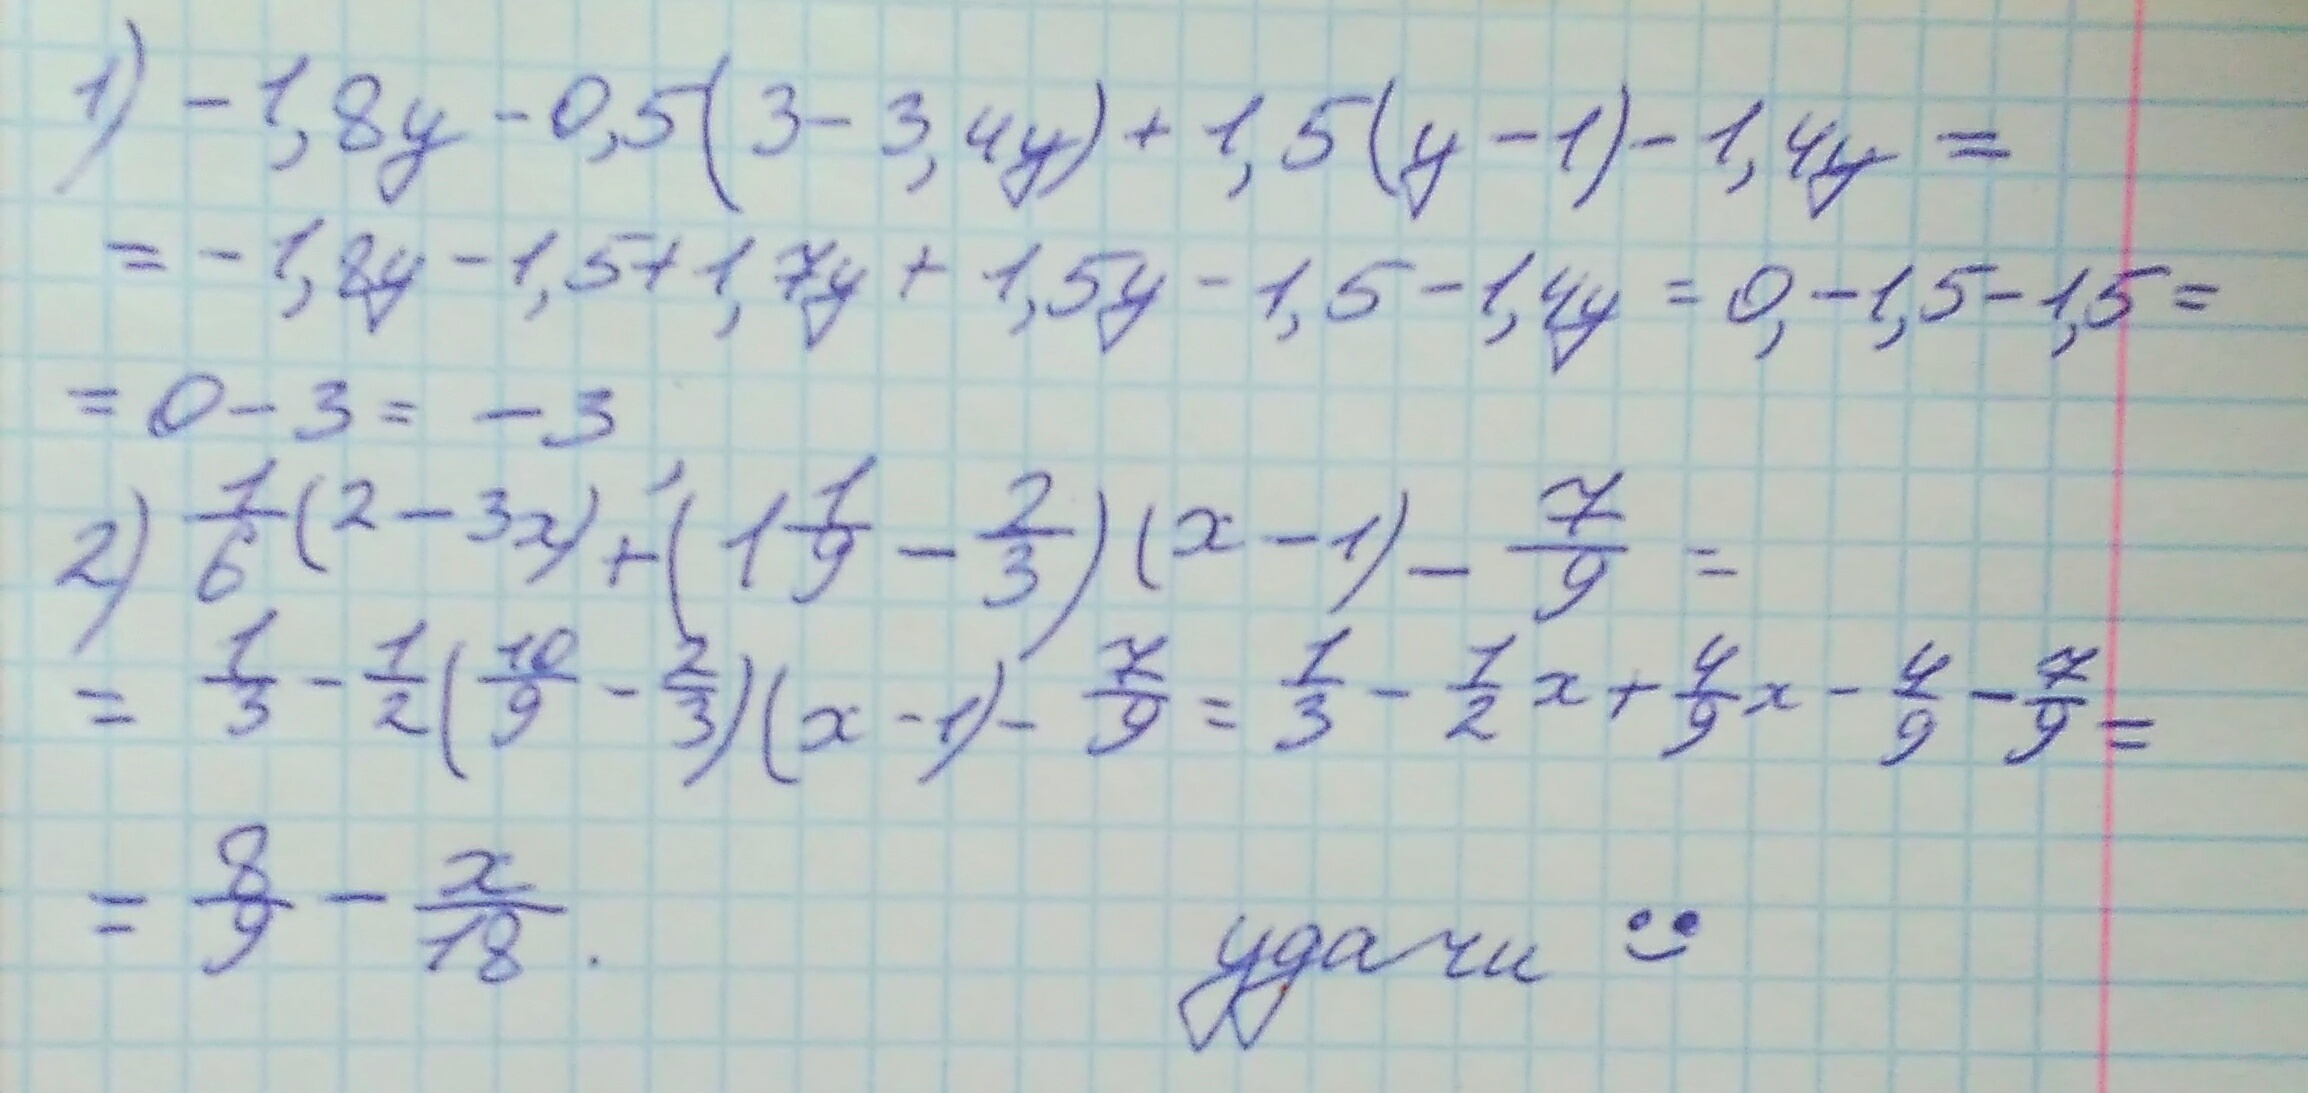 1) -1,8y - 0,5(3 - 3,4y) + 1,5(y - 1) - 1,4y =
= -1,8y - 1,5 + 1,7y + 1,5y - 1,5 - 1,4y = 0, -1,5 - 1,5 =
= 0 - 3 = -3
2) 1/6 (2 - 3x) + (1 1/9 - 2/3) (x - 1) - 7/9 =
= 1/3 - 1/2 (10/9 - 2/3) (x - 1) - 7/9 = 1/3 - 1/2 x + 4/9 x - 4/9 - 7/9 =
= 8/9 - x/18 .
удачи